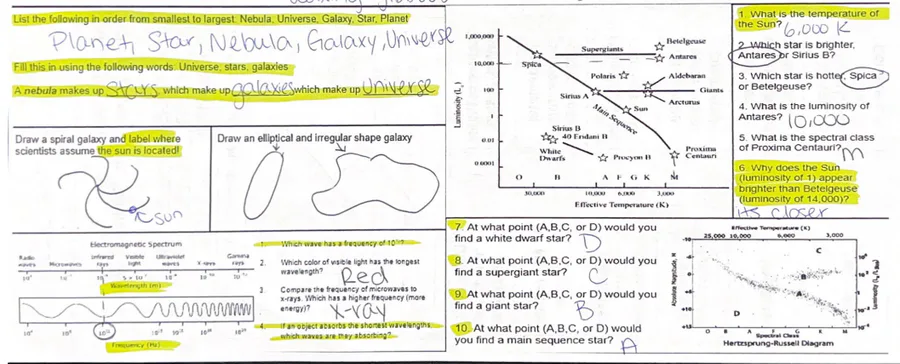 List the following in order from smallest to largest. Nebula, Universe, Galaxy, Star, Planet
Planet, Star, Nebula, Galaxy, Universe
Fill this in using the following words. Universe, stars, galaxies
A nebula makes up stars which make up galaxies which make up Universe
Draw a spiral galaxy and label where
scientists assume the sun is located!
Sun
Draw an elliptical and irregular shape galaxy
Electromagnetic Spectrum
Radio waves
Microwaves
Infrared rays
Visible light
Ultraviolet waves
X-rays
Gamma rays
Wavelength (m)
Frequency (Hz)
1. Which wave has a frequency of
2. Which color of visible light has the longest
wavelength?
Red
3. Compare the frequency of microwaves to
x-rays. Which has a higher frequency (more
energy)?
X-ray
4. If an object absorbs the shortest wavelengths,
which waves are they absorbing?
1,000,000
10,000
100
1
0.01
0.0001
Luminosity
Supergiants
Betelgeuse
Antares
Spica
Polaris
Aldebaran
Giants
Sirius A
Arcturus
Main Sequence
Sun
Sirius B
40 Eridani B
White
Dwarfs
Procyon B
Proxima
Centauri
O B A F G K M
30,000 10,000 6,000 3,000
Effective Temperature (K)
1. What is the temperature of
the Sun? 6,000 K
2. Which star is brighter,
Antares or Sirius B?
3. Which star is hotter, Spica
or Betelgeuse?
4. What is the luminosity of
Antares? 10,000
5. What is the spectral class
of Proxima Centauri? M
6. Why does the Sun
(luminosity of 1) appear
brighter than Betelgeuse
(luminosity of 14,000)?
its closer
7. At what point (A,B,C, or D) would you
find a white dwarf star? D
8. At what point (A,B,C, or D) would you
find a supergiant star? C
9. At what point (A,B,C, or D) would you
find a giant star? B
10. At what point (A,B,C, or D) would
you find a main sequence star? A
Effective Temperature (K)
25,000 10,000 6,000 3,000
Absolute Magnitude, M
C
B
A
D
O B A F G K M
Spectral Class
Hertzsprung-Russell Diagram